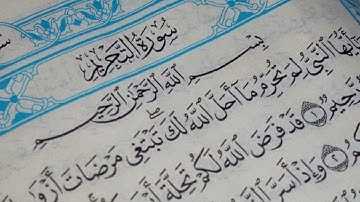 سُورَةُ التَّحْرِيمِ
بِسْمِ اللَّهِ الرَّحْمَٰنِ الرَّحِيمِ
يَا أَيُّهَا النَّبِيُّ لِمَ تُحَرِّمُ مَا أَحَلَّ اللَّهُ لَكَ تَبْتَغِي مَرْضَاتَ
قَدْ فَرَضَ اللَّهُ لَكُمْ تَحِلَّةَ
وَإِذْ أَسَرَّ النَّبِيُّ